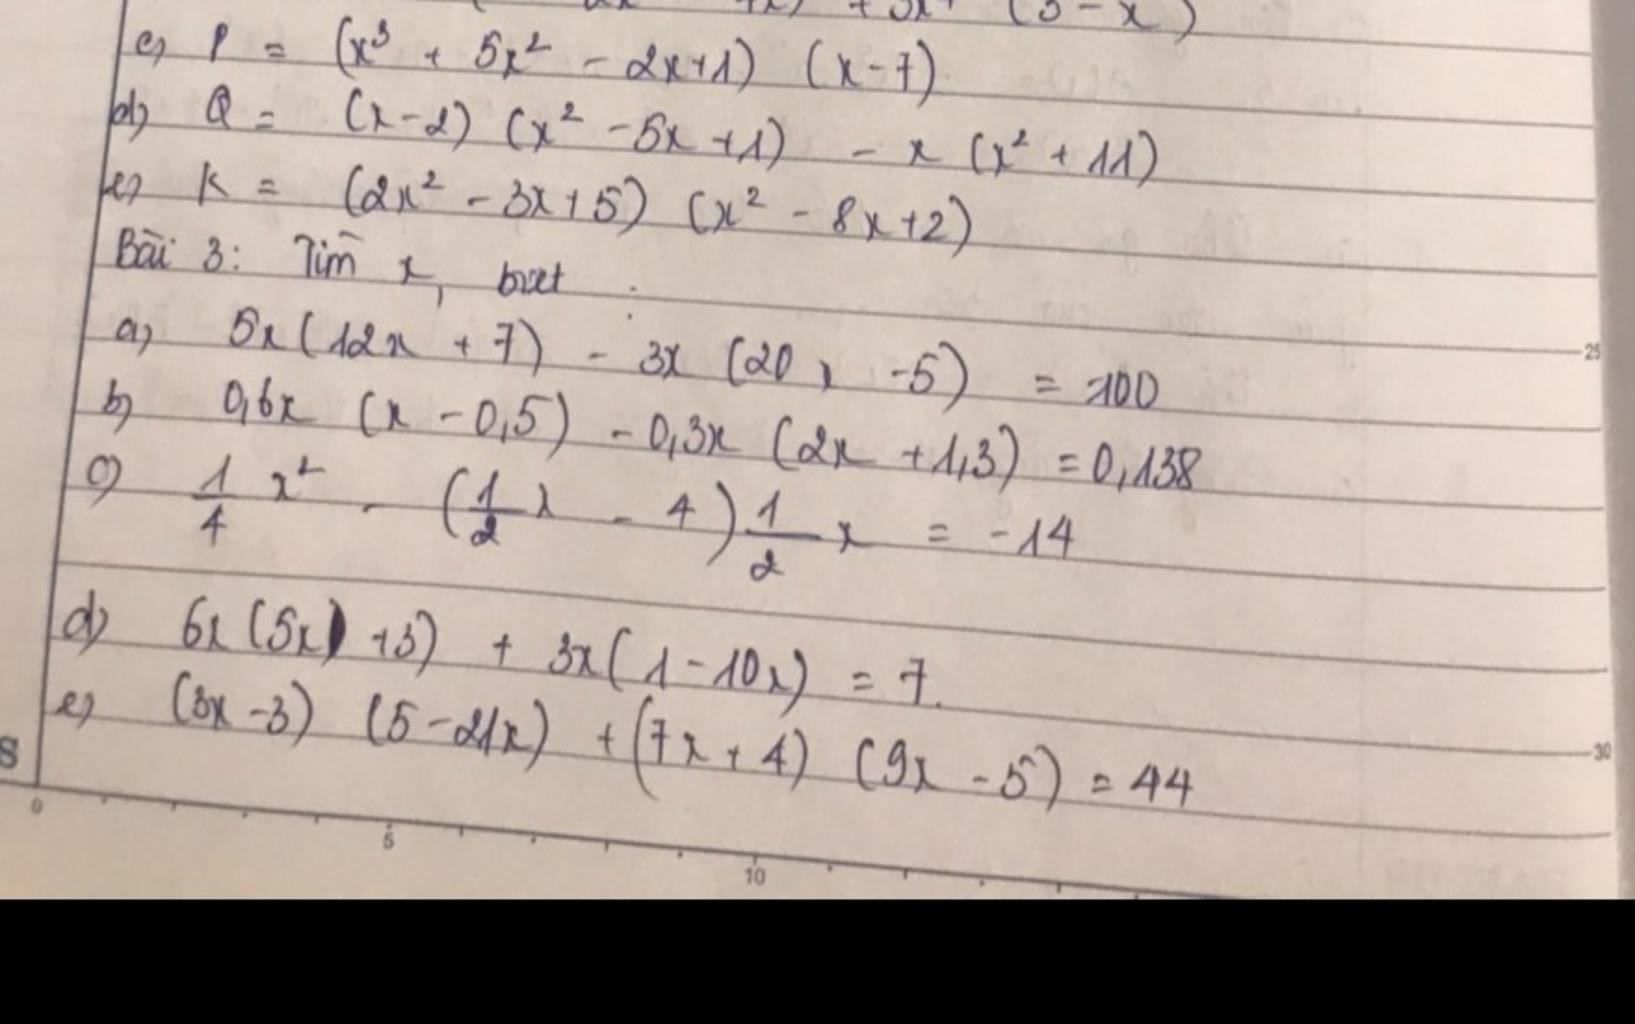 + 3x (3 - x)
c) P = (x³ + 5x² - 2x+1) (x-7)
d) Q = (x-2) (x² - 5x +1) - x (x² + 11)
e) K = (2x² - 3x+5) (x² - 8x+2)
Bài 3: Tìm x, biet
a) 5x(12x + 7) - 3x (20x -5) = 100
b) 0,6x (x - 0,5) - 0,3x (2x +1,3) = 0,138
c) 1/4 x² - (1/2 x - 4) 1/2 x = -14
d) 6x (5x +3) + 3x( 1 - 10x) = 7.
e) (3x -3) (5 - 21x) + (7x + 4) (9x - 5) = 44
25
30
S
0 5 10